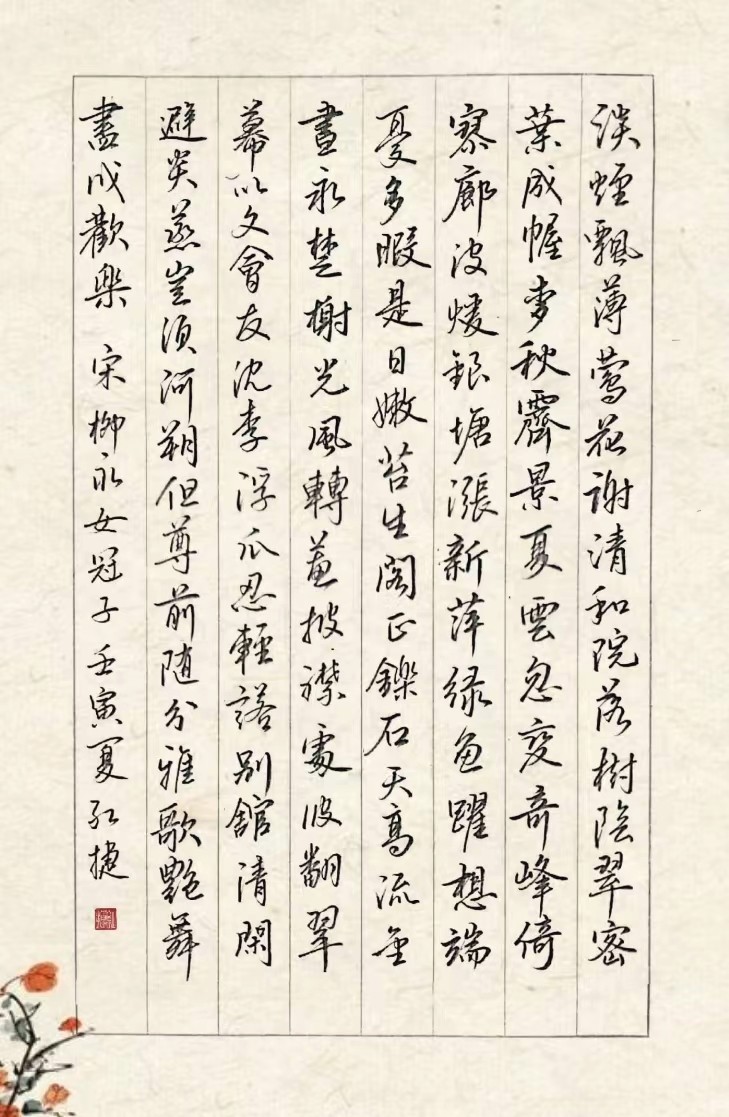 淡煙飄薄鶯花謝清和院落樹陰翠密
葉成幄麥秋霽景夏雲忽變奇峰倚
寥廓波暖銀塘漲新萍綠魚躍想端
憂多暇是日嫩苔生閣正鑠石天高流金
晝永楚榭光風轉蕙披襟處波翻翠
幕以文會友沈李浮瓜忍輕諾別館清閑
避炎蒸豈須河朔但尊前随分雅歌艷舞
盡成歡樂 宋柳永女冠子壬寅夏 捷